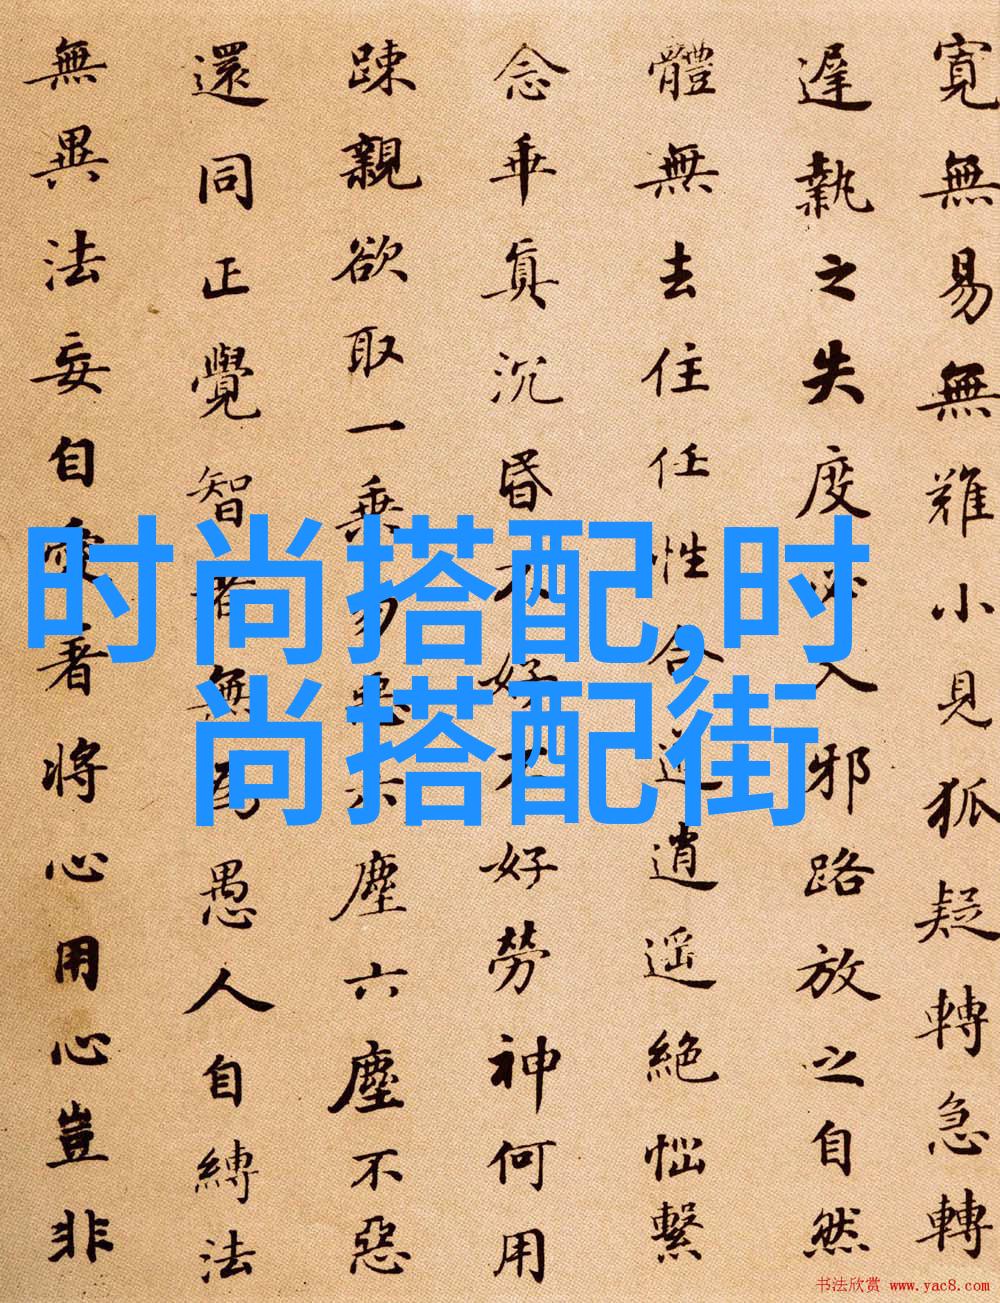 寬無易無難小見狐疑轉急轉
遲執之失度必入邪路放之自然
體無去住任性合道逍遥絶惱繫
念乖真沉昏不好不好勞神何用
踈親欲取一乗勿惡六塵六塵不惡
還同正覺智者無為愚人自縛法
無異法妄自愛著將心用心豈非
时尚搭配,时
尚搭配街
书法欣赏 www.yac8.com